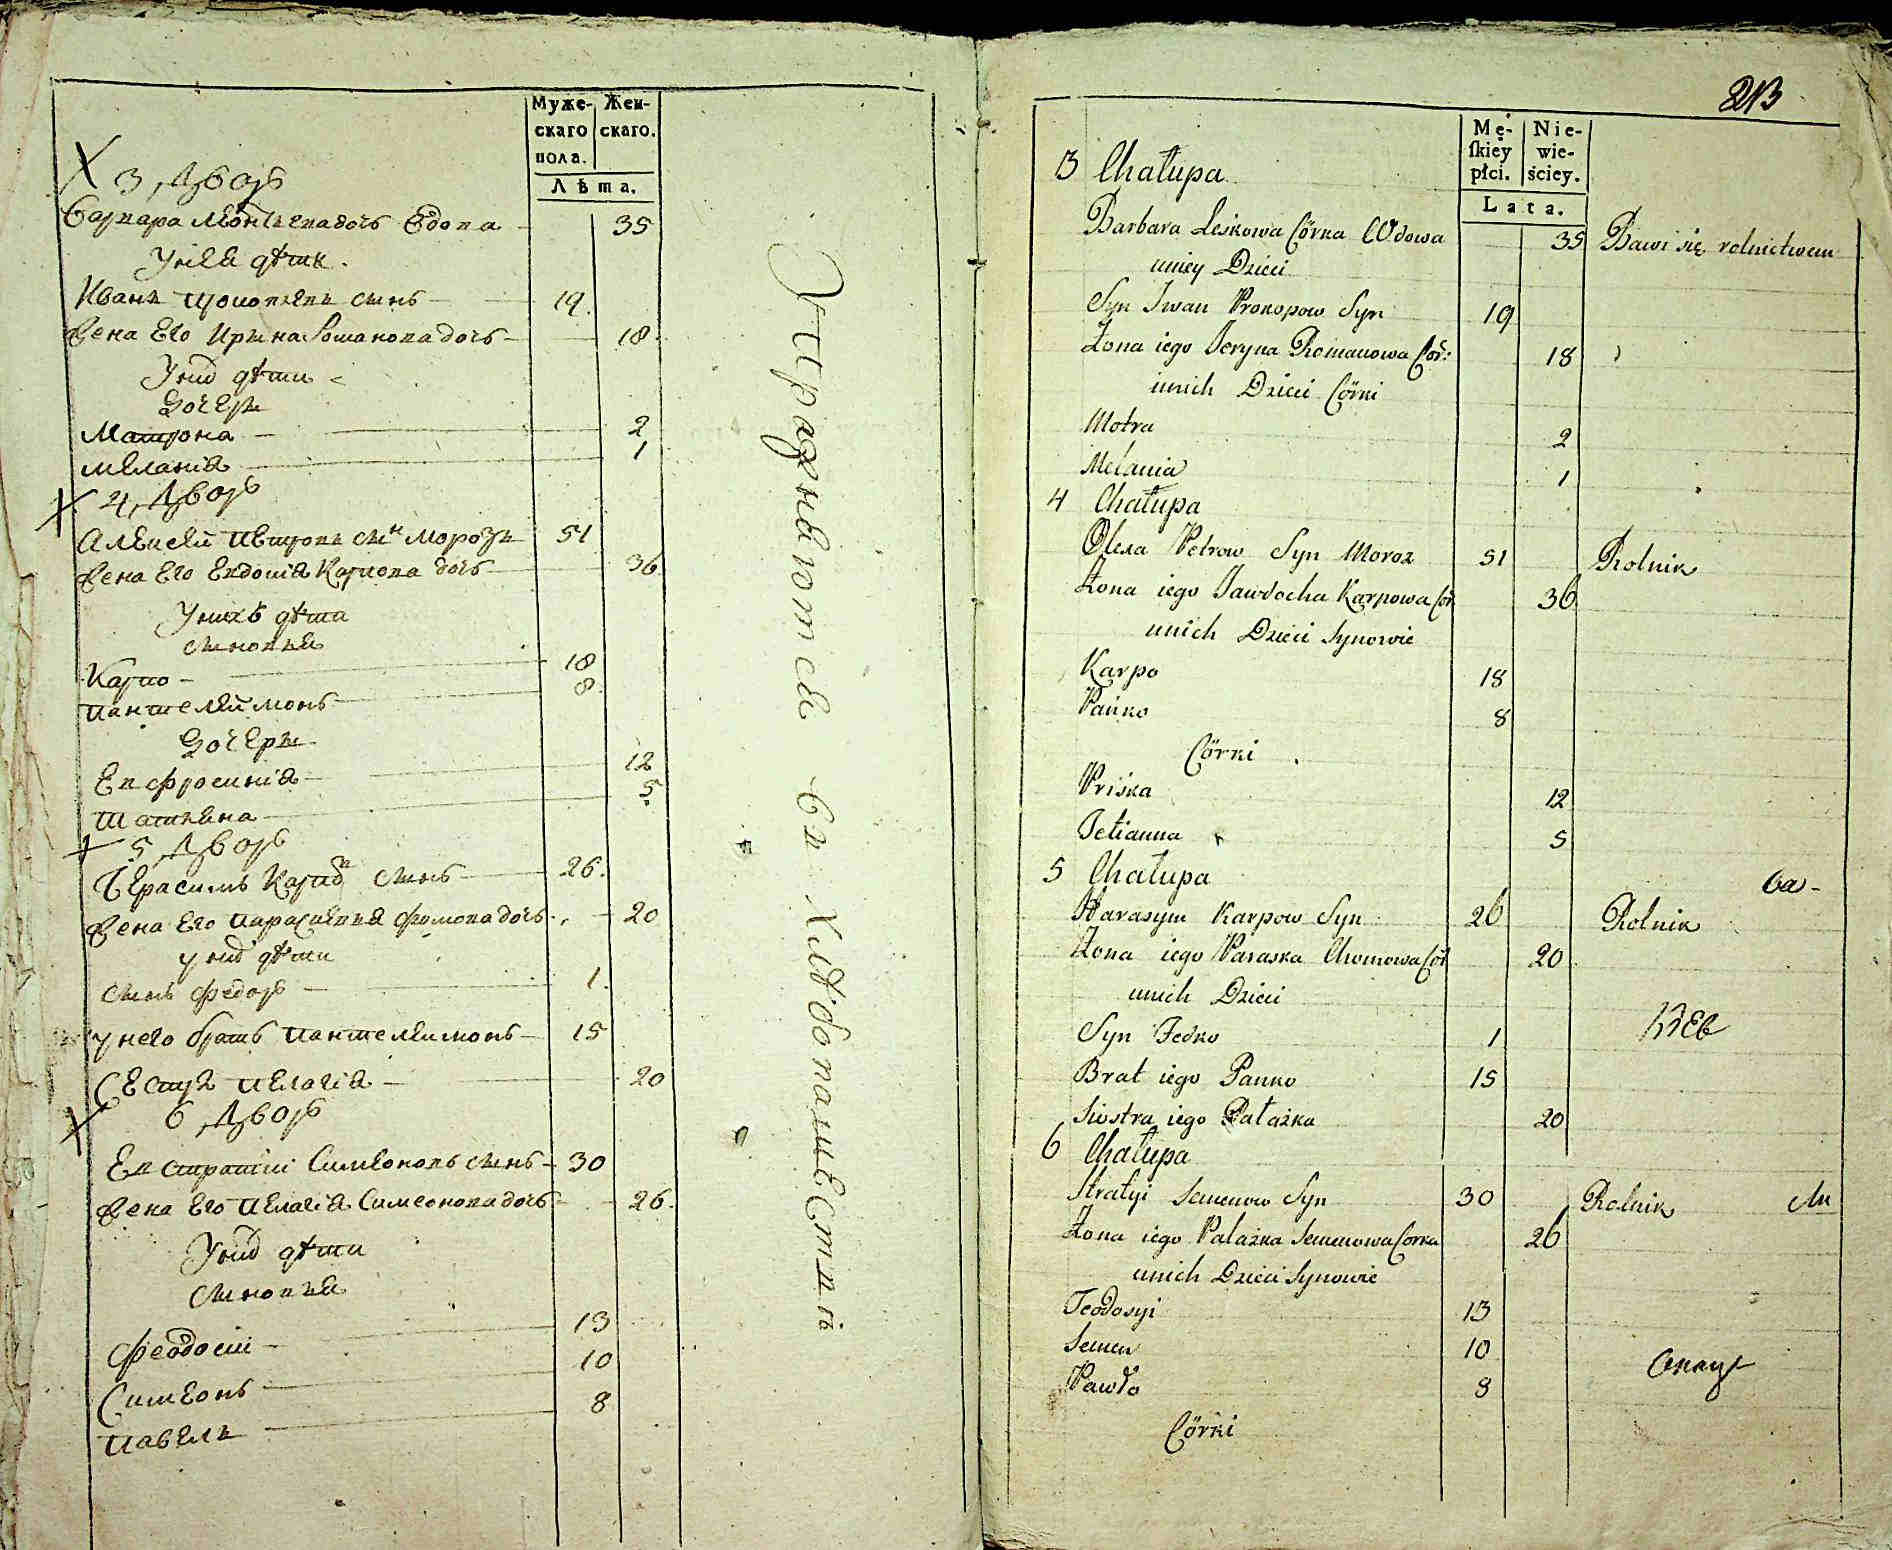 Муже-
скаго
пола.
Жен-
скаго.
Лѣта.
3 дворъ
Варвара Леонтьева дочь вдова 35
У нея дѣти
Иванъ Прокопиевъ сынъ 19.
Жена его Ирина Романова дочь 18.
У них дѣти
дочери
Матрона 2
Меланія 1
4 дворъ
Алексѣй Петровъ сынъ Морозъ 51
Жена его Евдокія Карпова дочь 36
У нихъ дѣти
сыновья
Карпъ 18
Пантелеймонъ 8.
дочери
Евфросинія 12
Татіяна 5.
5 дворъ
Герасимъ Карповъ сынъ 26.
Жена его Параскевія Фомова дочь 20
у них дѣти
сынъ Федоръ 1.
у него братъ Пантелеимонъ 15
Сестра Пелагія 20
6 дворъ
Евстратій Симеоновъ сынъ 30
Жена его Пелагія Симеонова дочь 26.
У них дѣти
сыновья
Феодосій 13
Симеонъ 10
Павелъ 8
Упражняются въ хлѣбопашествѣ
213
Mę-
ſkiey
płci.
Nie-
wie-
ściey.
Lata.
3 Chałupa
Barbara Leskowa Córka Wdowa 35 Bawi się rolnictwem
u niey Dzieci
Syn Iwan Prokopow Syn 19
Żona iego Jeryna Romanowa Cór: 18
u nich Dzieci Córki
Motra 2
Melania 1
4 Chałupa
Olexa Petrow Syn Moroz 51 Rolnik
Żona iego Jawdocha Karpowa Cór 36
u nich Dzieci Synowie
Karpo 18
Pańko 8
Córki
Priśka 12
Tetianna 5
5 Chałupa
Harasym Karpow Syn 26 Rolnik
Żona iego Paraska Chomowa Cór 20
u nich Dzieci
Syn Fedko 1
Brat iego Panko 15
Siostra iego Pałażka 20
6 Chałupa
Stratyi Semenow Syn 30 Rolnik
Żona iego Pałażka Semenowa Corka 26
u nich Dzieci Synowie
Teodosyi 13
Semen 10
Pawło 8
Córki